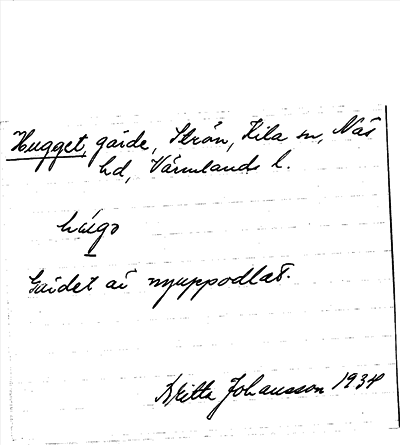 Hugget, gärde, Strön, Kila sn, Näs
hd, Värmlands l.
húgə
Gärdet är nyuppodlat.
Britta Johansson 1934